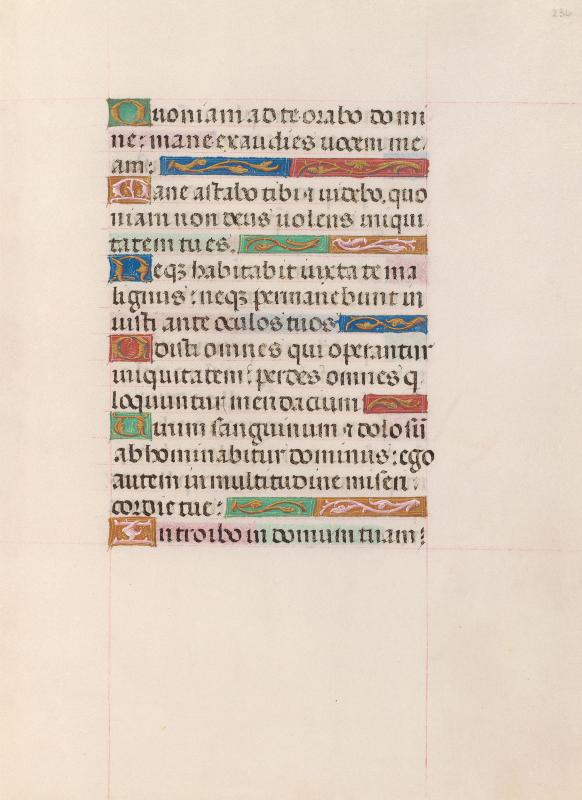 236
Quoniam ad te orabo domi
ne: mane exaudies uocem me
am:
Mane astabo tibi ⁊ uidebo, quo
niam non deus uolens iniqui
tatem tu es.
Neqꝫ habitabit iuxta te ma
lignus: neqꝫ permanebunt in
iusti ante oculos tuos
Odisti omnes qui operantur
iniquitatem: perdes omnes q
loquuntur mendacium
Uirum sanguinum ⁊ dolosū
abhominabitur dominus: ego
autem in multitudine miseri
cordie tue:
Introibo in domum tuam: